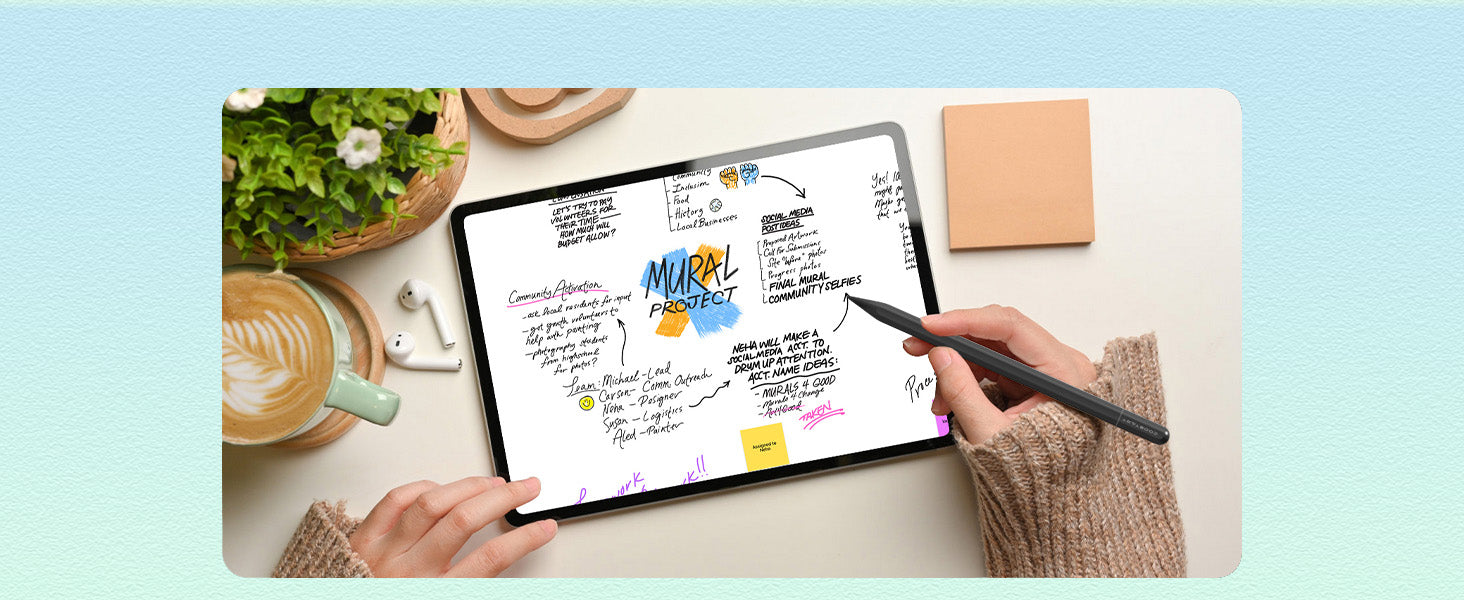 LET'S TRY TO PAY
VOLUNTEERS FOR
THEIR TIME
HOW MUCH WILL
BUDGET ALLOW?
Community
Inclusion
Food
History
Local Businesses
SOCIAL MEDIA
POST IDEAS
Proposed Artwork
Call For Submissions
Site "before" photos
Progress photos
FINAL MURAL
COMMUNITY SELFIES
Yes!
might
Maybe
that we
MURAL
PROJECT
Community Activation
-ask local residents for input
-get youth volunteers to
help with painting
-photography students
from highschool
for photos?
Team: Michael-Lead
Carsen- Comm Outreach
Neha -Designer
Susan - Logistics
Aled -Painter
NEHA WILL MAKE A
SOCIAL MEDIA ACCT. TO
DRUM UP ATTENTION.
ACCT. NAME IDEAS:
- MURALS 4 GOOD
- Murals 4 Change
- Art4Good
TAKEN
Assigned to
Neha
work